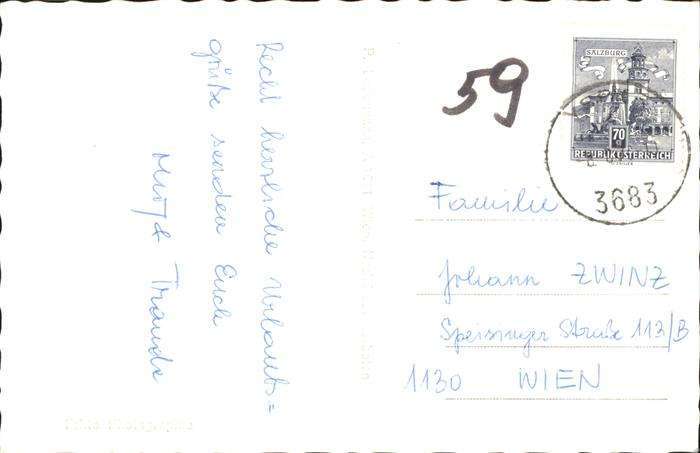 Recht herzliche Urlaubs=
grüße senden Euch
Traude
59
SALZBURG
70
REPUBLIK ÖSTERREICH
3683
Familie
Johann ZWINZ
Speisinger Straße 113/B
1130 WIEN